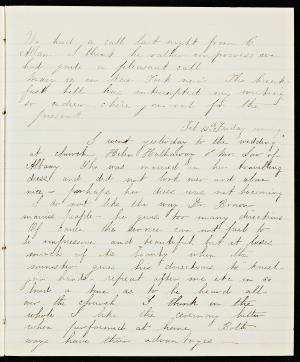 We had a call last night from C.
Allan. I think he rather improves. we
had quite a pleasant call.
Mary is in New York now. The break-
fast bell has interrupted my writing
so adieu chère for the
present.
Feb 15th Tuesday evening
I went yesterday to the wedding
at church, Helen Hathaway & her of
Albany. She was married in her travelling
dress and did not look over and above
nice - perhaps her dress was not becoming
I do not like the way Dr. Brown
marries people - he gives too many directions.
Of course the service can not fail to
be impressive and beautiful but it loses
much of its beauty when the
minister gives his directions to kneel
join hands, repeat after me etc in so
loud a tone as to be heard all
over the church. I think on the
whole I like the ceremony better
when performed at home, Both
ways have their advantages